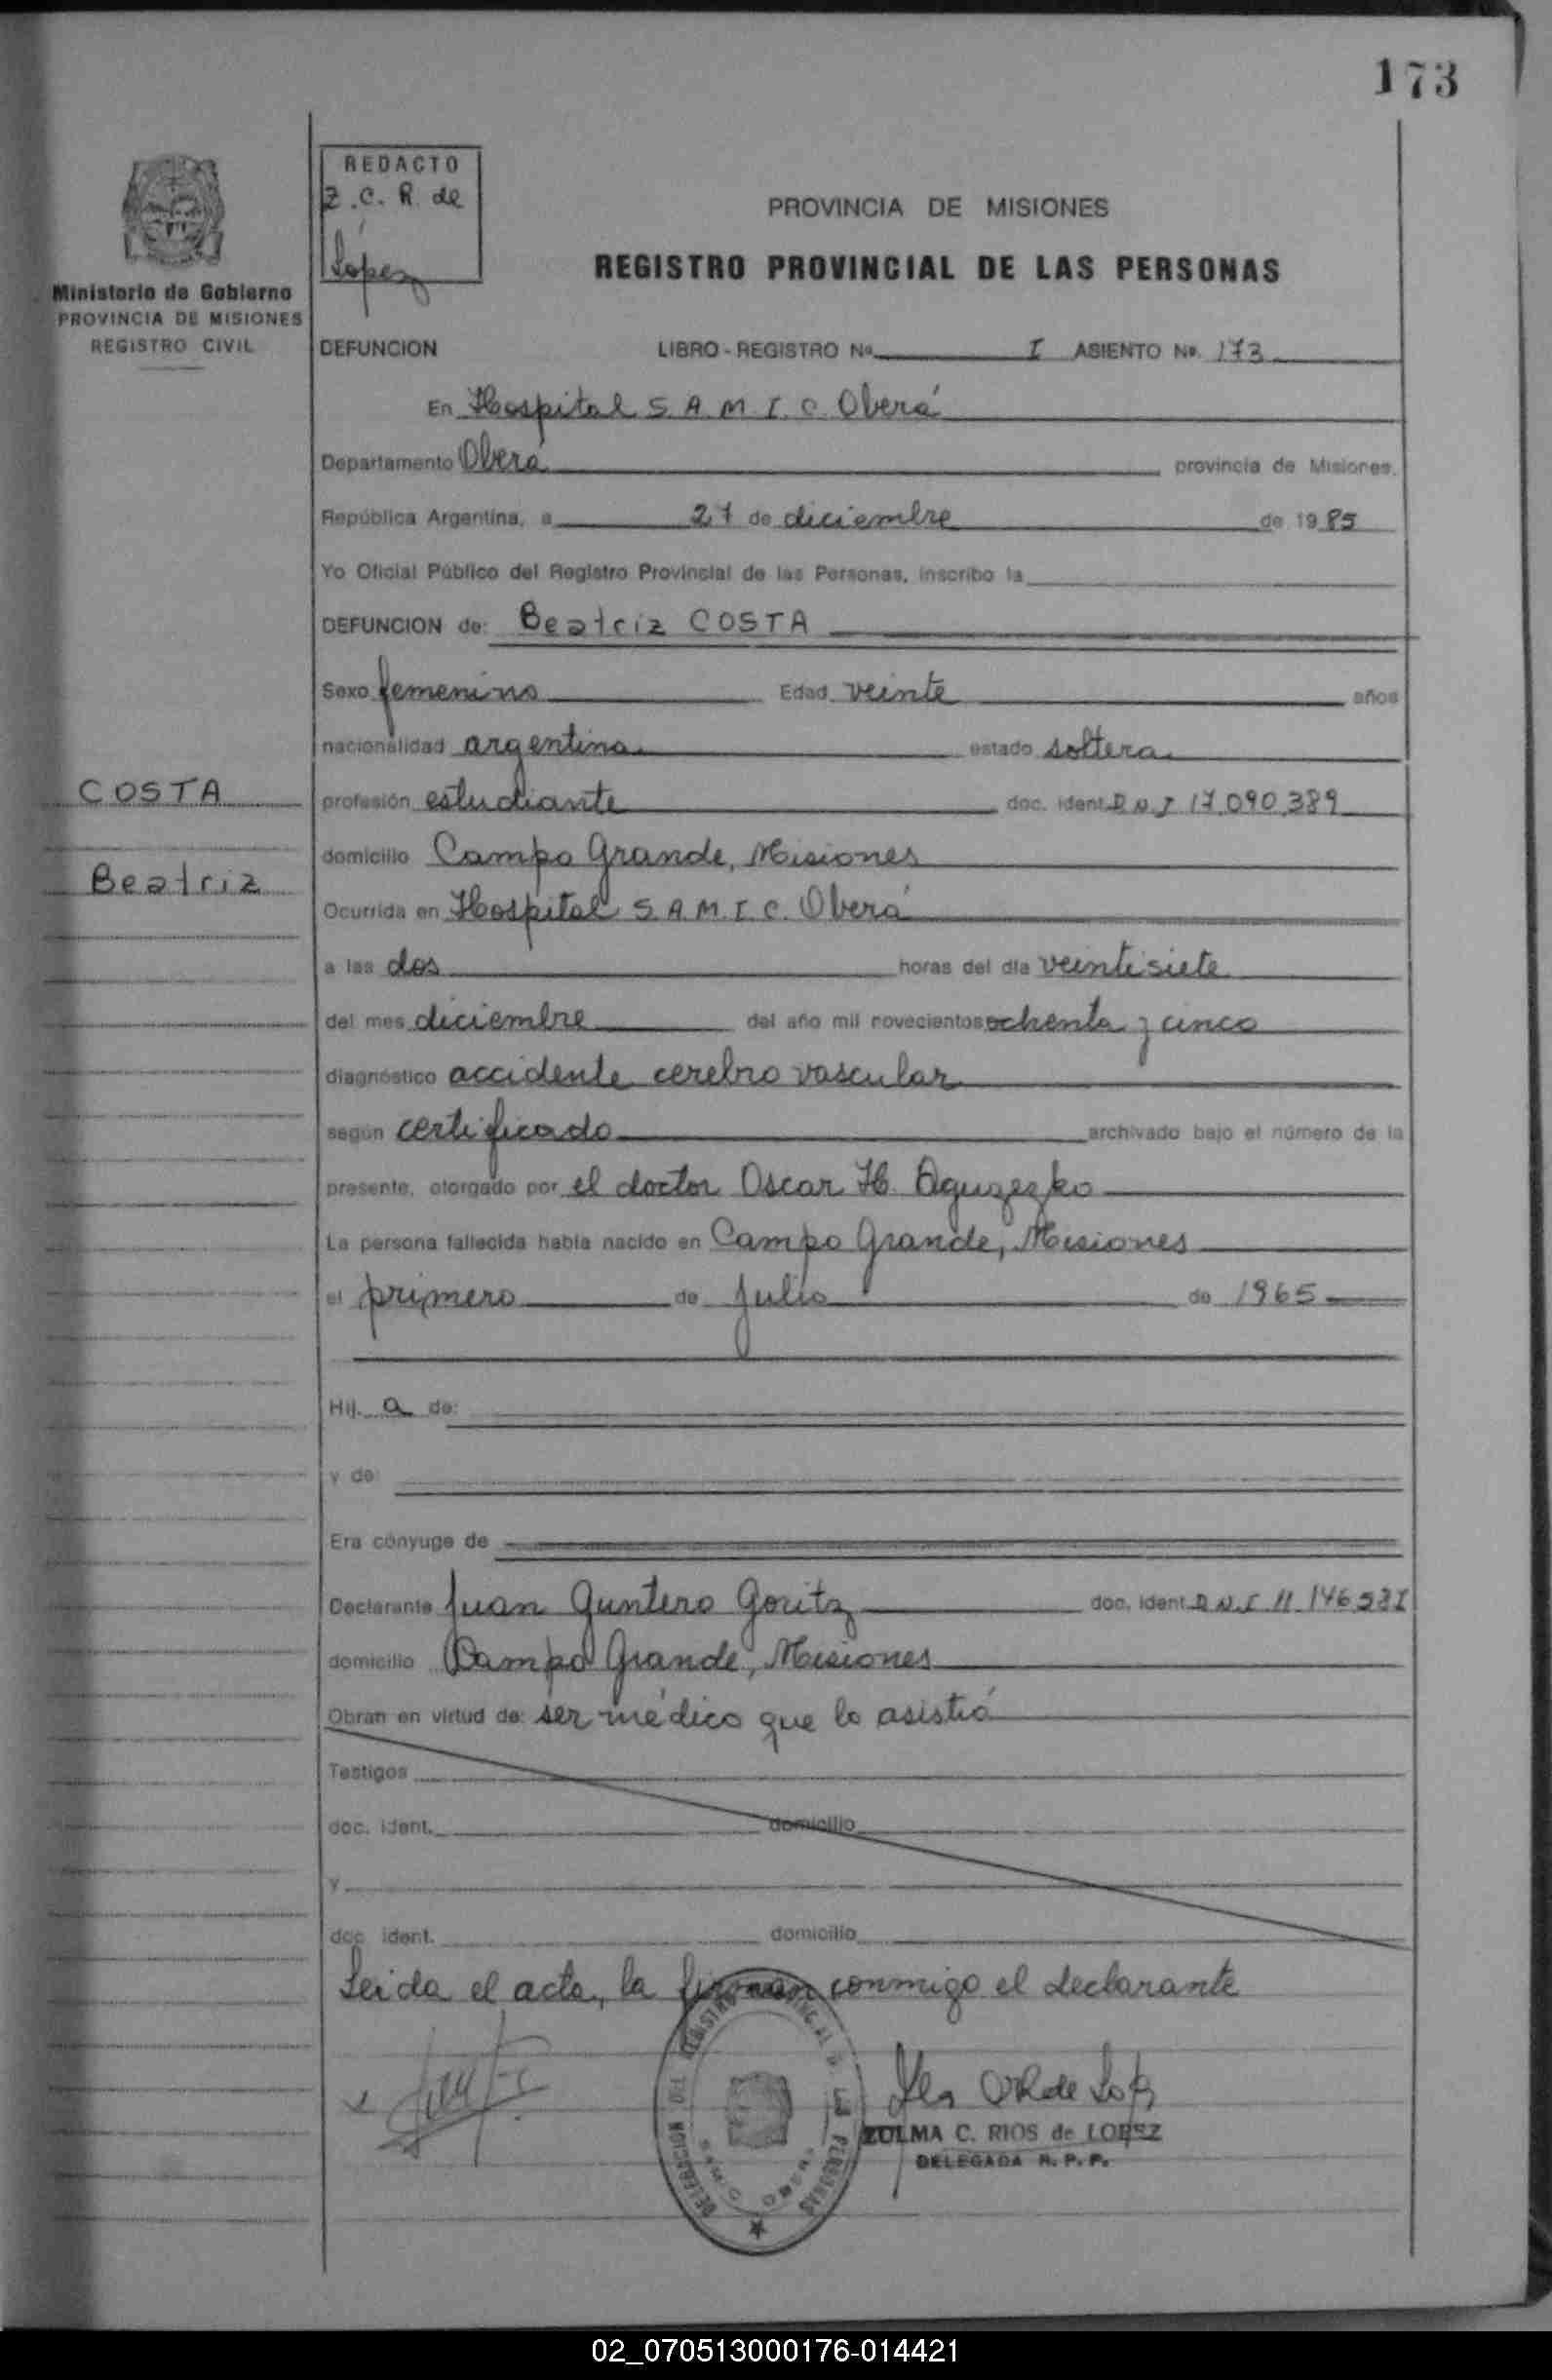 173
REDACTO
Z. C. R. de
López
Ministerio de Gobierno
PROVINCIA DE MISIONES
REGISTRO CIVIL
PROVINCIA DE MISIONES
REGISTRO PROVINCIAL DE LAS PERSONAS
DEFUNCION LIBRO - REGISTRO Nº I ASIENTO Nº. 173
En Hospital S. A. M. I. C. Oberá
Departamento Oberá provincia de Misiones.
República Argentina, a 27 de diciembre de 1985
Yo Oficial Público del Registro Provincial de las Personas, inscribo la
DEFUNCION de: Beatriz COSTA
Sexo femenino Edad veinte años
nacionalidad argentina estado soltera
COSTA
profesión estudiante doc. ident. D N I 17.090.389
domicilio Campo Grande, Misiones
Beatriz
Ocurrida en Hospital S. A. M. I. C. Oberá
a las dos horas del día veintisiete
del mes diciembre del año mil novecientos ochenta y cinco
diagnóstico accidente cerebro vascular
según certificado archivado bajo el número de la
presente, otorgado por el doctor Oscar H.
La persona fallecida había nacido en Campo Grande, Misiones
el primero de julio de 1965
Hij a de:
y de
Era cónyuge de
Declarante Juan Guntero Goritz doc. ident. D N I 11.146.
domicilio Campo Grande, Misiones
Obran en virtud de: ser médico que lo asistió
Testigos
doc. ident. domicilio
y
doc. ident. domicilio
Leida el acta, la firman conmigo el declarante
DELEGACION DEL REGISTRO PROVINCIAL DE LAS PERSONAS
ZULMA C. RIOS de LOPEZ
DELEGADA R. P. P.
02_070513000176-014421